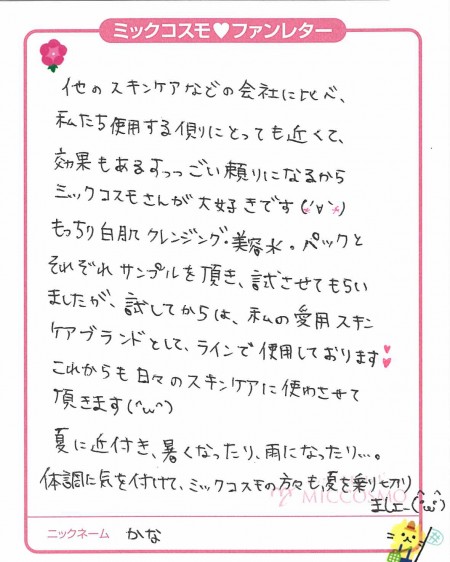 ミックコスモ♥ファンレター
他のスキンケアなどの会社に比べ、
私たち使用する側にとっても近くて、
効果もあるすっっごい頼りになるから
ミックコスモさんが大好きです(*'∀'*)
もっちり白肌クレンジング・美容水。パックと
それぞれサンプルを頂き、試させてもらい
ましたが、試してからは、私の愛用スキン
ケアブランドとして、ラインで使用しております♥♥
これからも日々のスキンケアに使わさせて
頂きます(^ω^)
夏に近付き、暑くなったり、雨になったり…。
体調に気を付けて、ミックコスモの方々も、夏を乗り切り
ましょー(^ω^)
MICCOSMO
ニックネーム かな